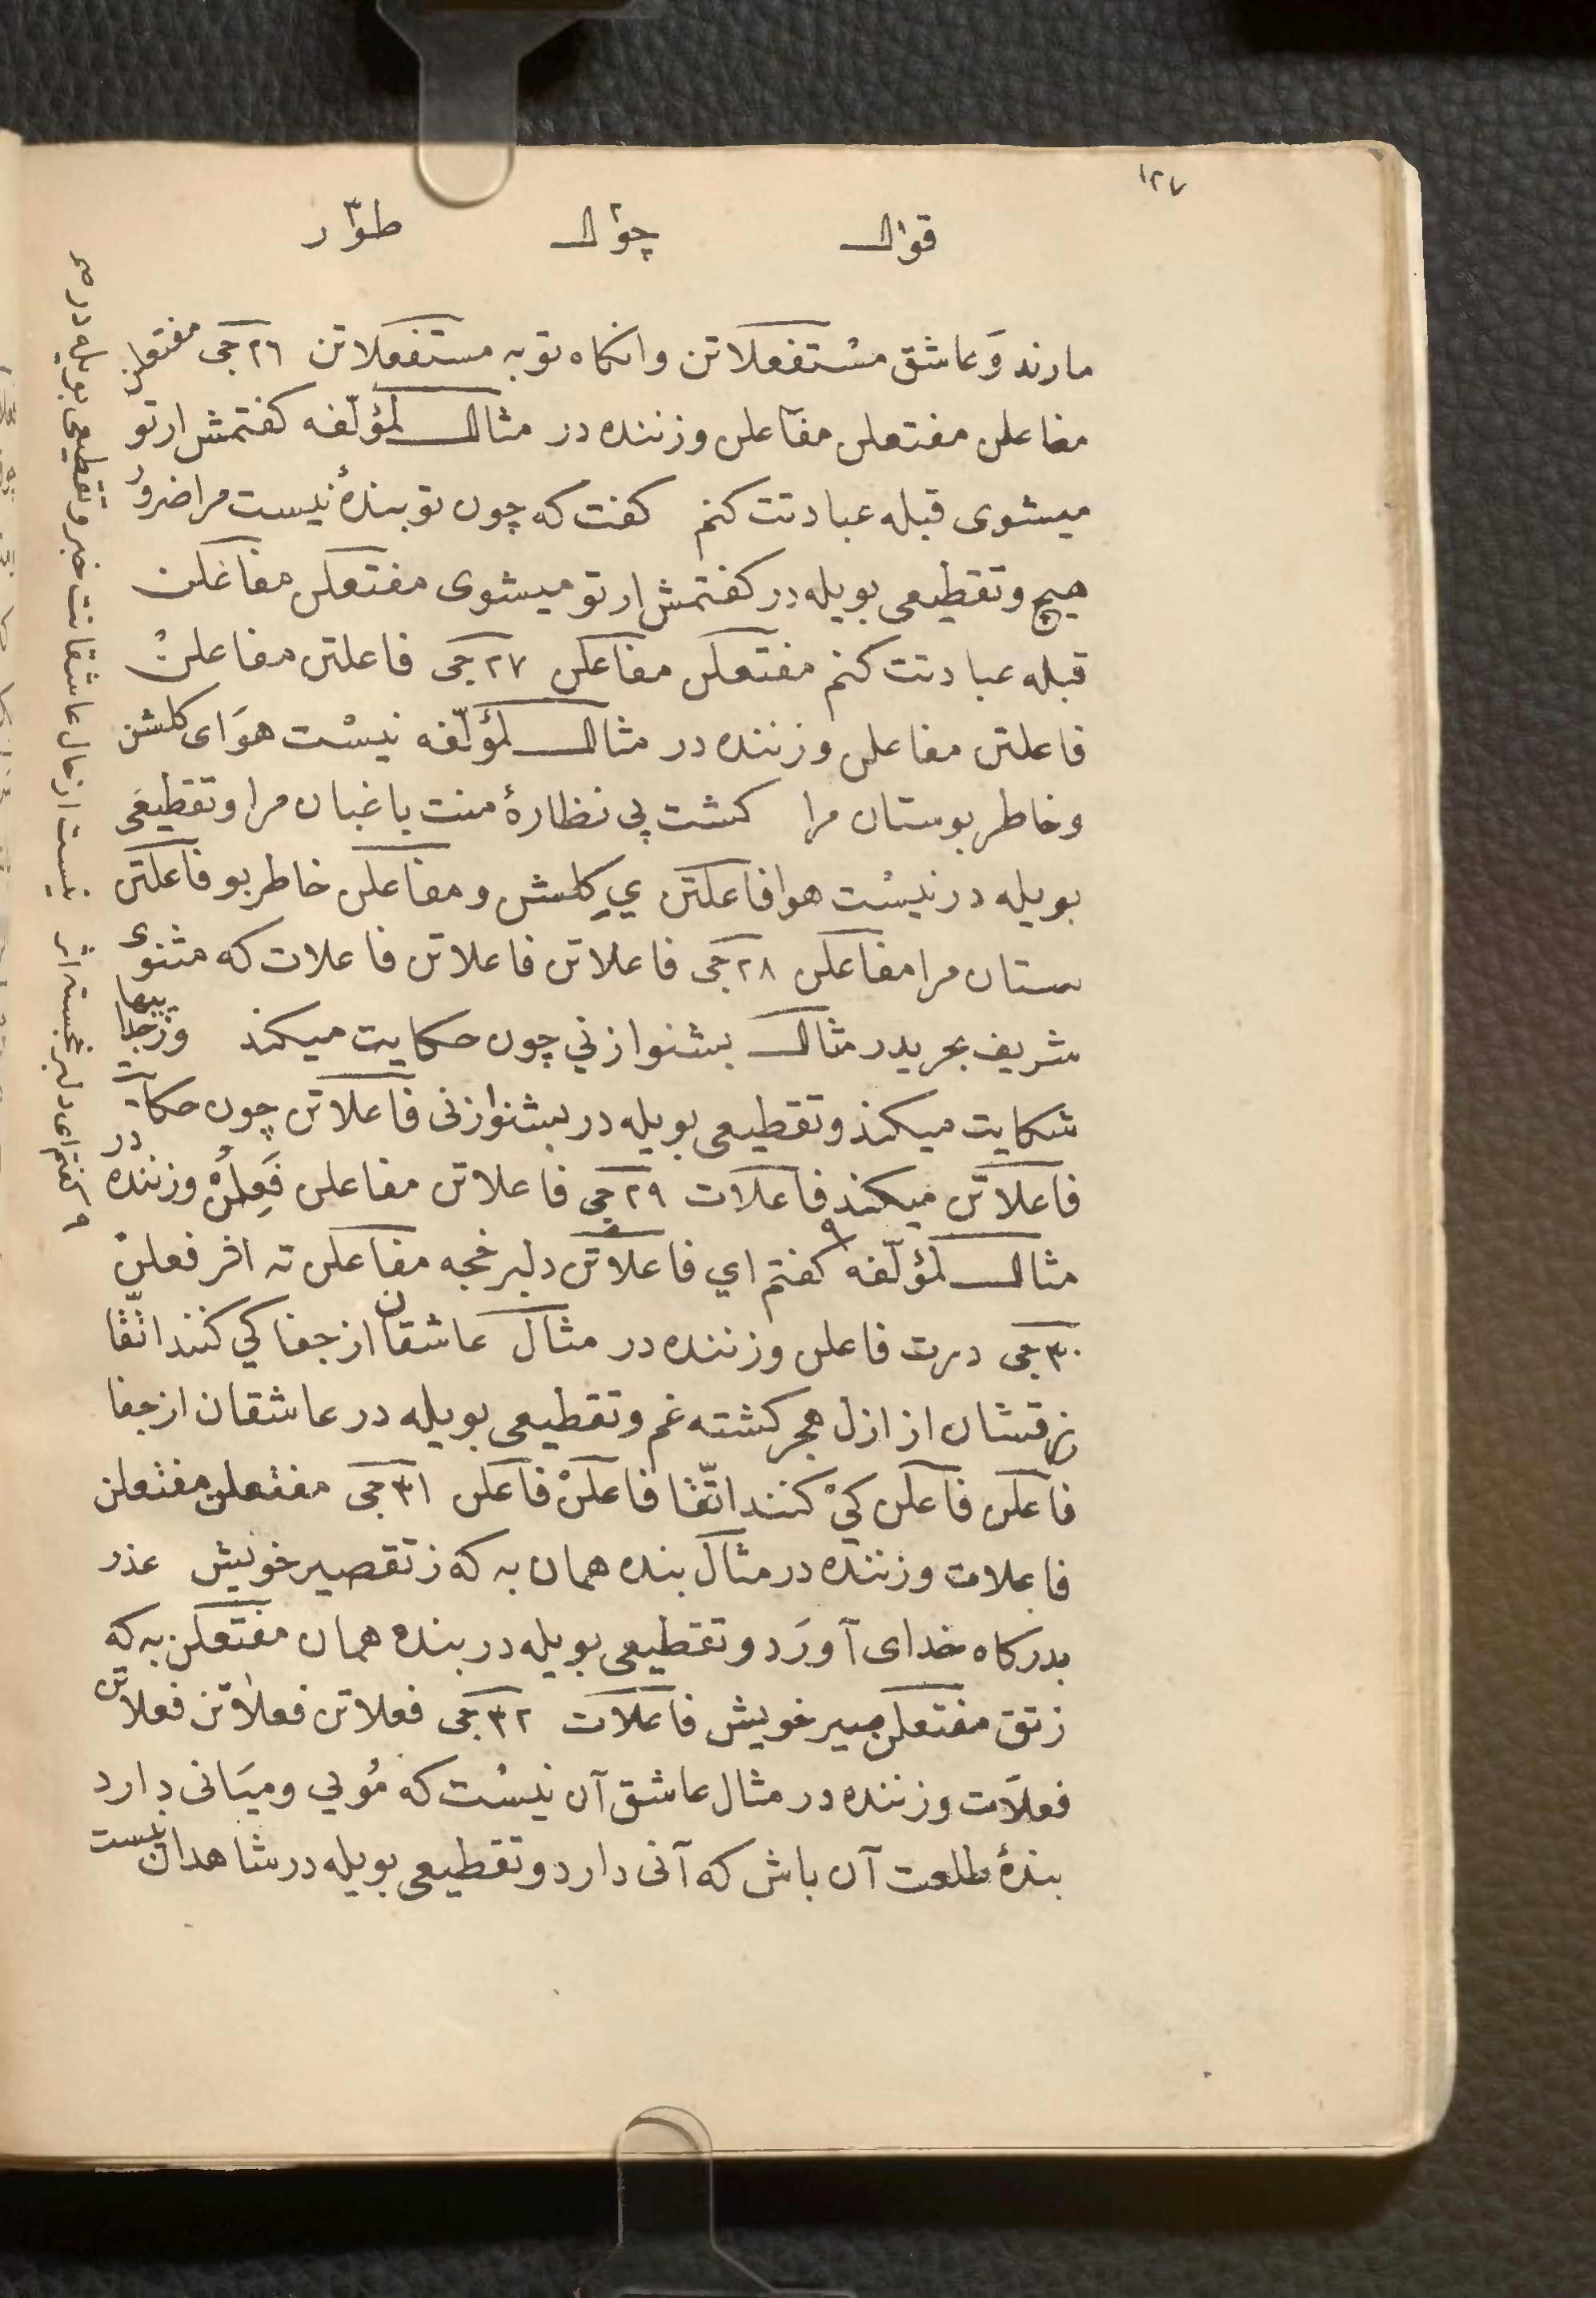 ١٢٧
قوّال چوّال طوّار
مارند وَعاشق مسْتفعلاتن وانكاه توبه مستفعلاتن ٢٦ جى مفتعلن
مفاعلن مفتعلن مفاعلن وزننده در مثال لمؤلّفه كفتمش ار تو
ميشوى قبله عبادتت كنم كفت كه چون تو بندهٔ نيست مرا ضرورُ
هيچ وتقطيعى بويله در كفتمش ار تو ميشوى مفتعلن مفاعلن
قبله عبادتت كنم مفتعلن مفاعلن ٢٧ جى فاعلتن مفاعلنْ
فاعلتن مفاعلن وزننده در مثال لمؤلّفه نيسْت هوَاى كلشن
وخاطر بوستان مرا كشت پى نظارهٔ منت باغبان مرا وتقطيعى
بويله در نيسْت هوا فاعلتن يِ كلشن و مفاعلن خاطر بو فاعلتن
ستان مرا مفاعلن ٢٨ جى فاعلاتن فاعلاتن فاعلات كه مثنوى
شريف بحريدر مثال بشنو از ني چون حكايت ميكند وز جداييها
شكايت ميكند وتقطيعى بويله در بشنو از نى فاعلاتن چون حكايت
فاعلاتن ميكند فاعلات ٢٩ جى فاعلاتن مفاعلن فَعِلُنْ وزننده در
مثال لمؤلّفه كفتم اي فاعلاتن دلبر خجه مفاعلن ته اثر فعلنْ
٣٠ جى درت فاعلن وزننده در مثال عاشقان از جفا كي كنند اتّقا
زقشان از ازل هجر كشته غم وتقطيعى بويله در عاشقان از جفا
فاعلن فاعلن كيْ كنند اتّقا فاعلنْ فاعلن ٣١ جى مفتعلن مفتعلن
فاعلات وزننده در مثال بنده همان به كه ز تقصير خويش عذر
بدركاه خداى آورَد وتقطيعى بويله در بنده همان مفتعلن به كه
ز تق مفتعلن صير خويش فاعلات ٣٢ جى فعلاتن فعلاتن فعلاتن
فعلاَت وزننده در مثال عاشق آن نيسْت كه مُويي وميَانى دارد
بندهٔ طلعت آن باش كه آنى دارد وتقطيعى بويله در شاهد آن نيست
٩ كفتم اى دلبر خجسته اثر نيست از حال عاشقانت خبر وتقطيعى بويله در صح